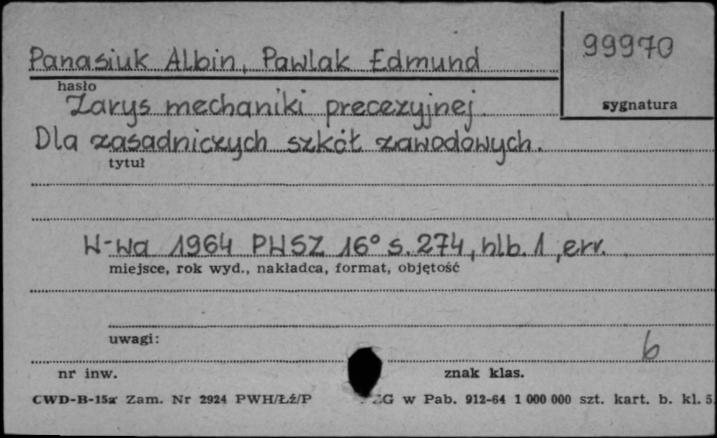 99970
Panasiuk Albin, Pawlak Edmund
hasło
sygnatura
Zarys mechaniki precezyjnej.
Dla zasadniczych szkół zawodowych.
tytuł
W-wa 1964 PWSZ 16° s. 274, nlb. 1, err.
miejsce, rok wyd., nakładca, format, objętość
uwagi:
b
nr inw.
znak klas.
CWD-B-15a Zam. Nr 2924 PWH/Łź/P w Pab. 912-64 1 000 000 szt. kart. b. kl. 5